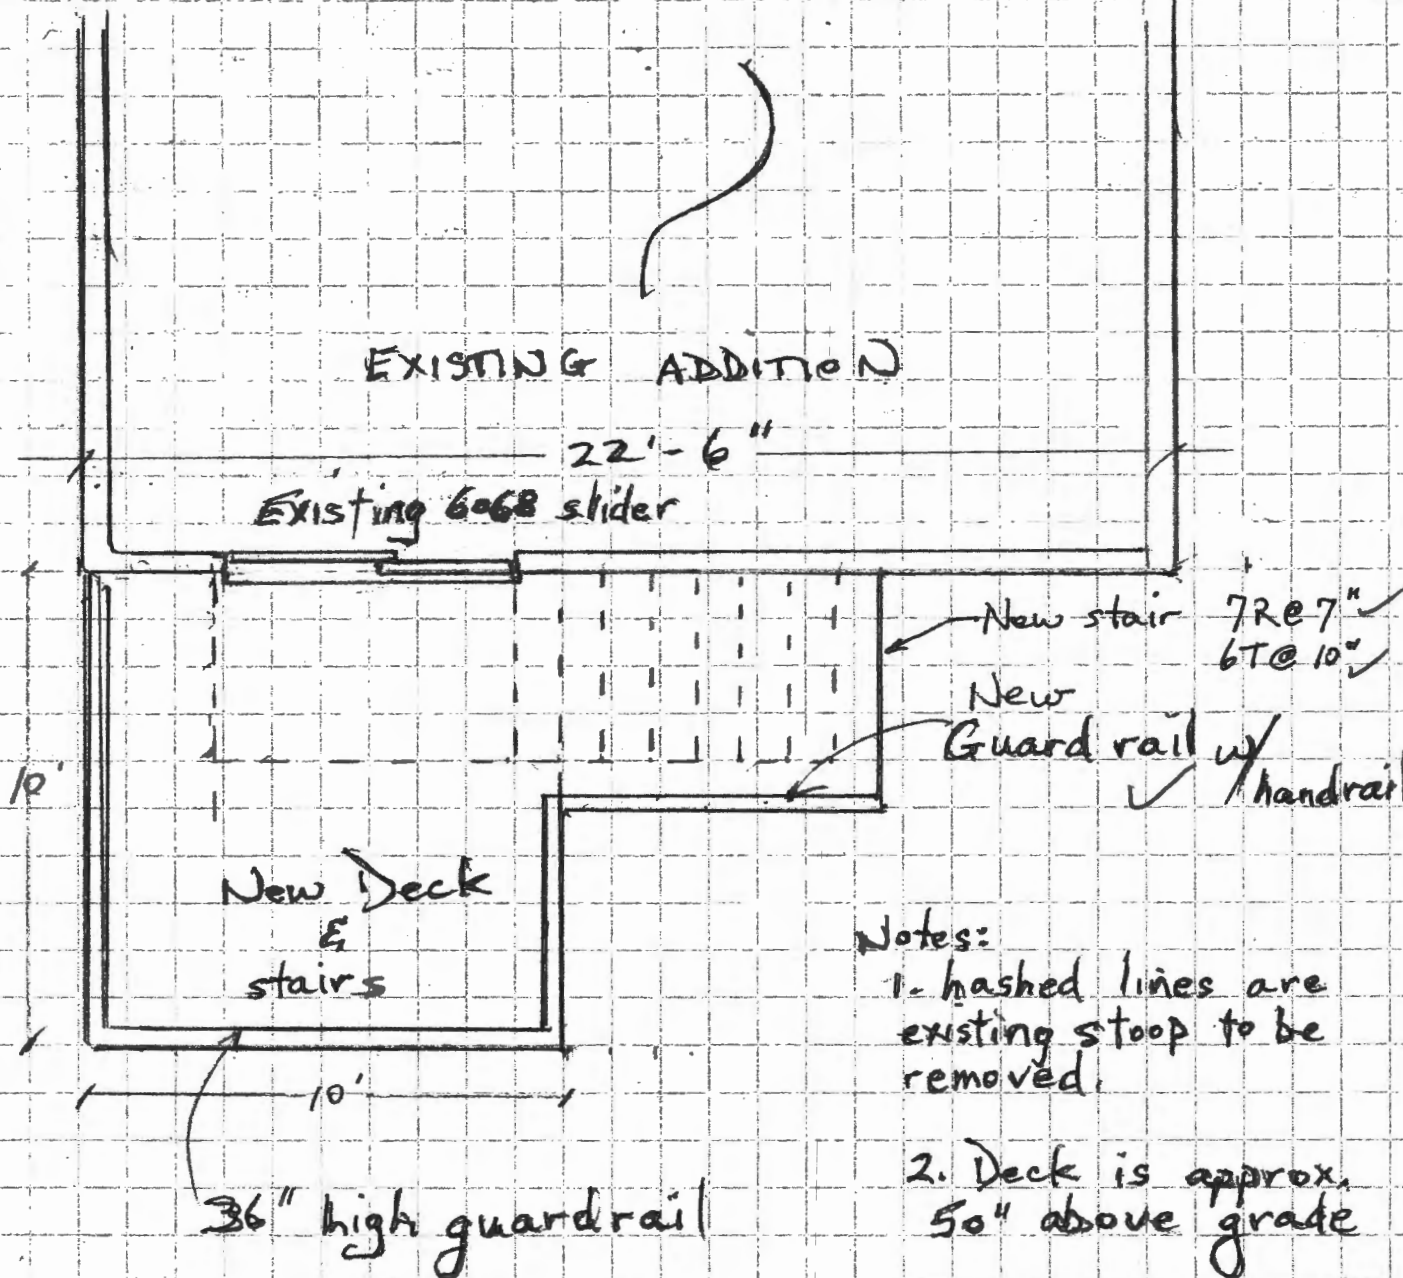 EXISTING ADDITION
22'-6"
Existing 6068 slider
New stair 7R@7"
6T@10"
New
Guard rail w/
handrail
10'
New Deck
&
stairs
Notes:
1. hashed lines are
existing stoop to be
removed.
10'
2. Deck is approx.
50" above grade
36" high guardrail